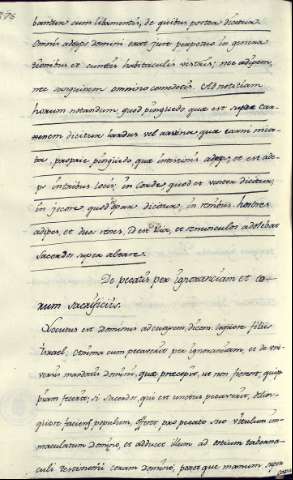 376
bantur cum libamentis, de quibus postea dicetur
omnis adeps domini erat jure perpetuo in genera
tionibus et cunctis habitaculis vestris; nec adipem,
nec sanguinem omnino comedetis. Ad notitiam
horum notandum quod pinguedo quae est supra car
nem dicitur lardus vel arvina quae carni mis
ta, proprie pinguedo quae intestinis adeps; et est ade
ps in tribus locis; in caule quod et venter dicitur;
in jecore quod dicitur, in renibus
adipes, et duo renes, id est et renunculos adolebat
Sacerdos super altare.
De peccatis per ignorantiam et eo
rum sacrificiis.
Locutus est dominus ad moysem, dicens. loquere filiis
Israel, anima cum peccaverit per ignorantiam, et de uni
versis mandatis domini, quae precepit, ut non fierent, quip
piam fecerit; si sacerdos, qui est unctus peccaverit, delin
quere faciens populum, offeret pro peccato suo vitulum im
maculatum domino, et adducet illum ad ostium taberna
culi testimonii coram domino, ponet que manum supra